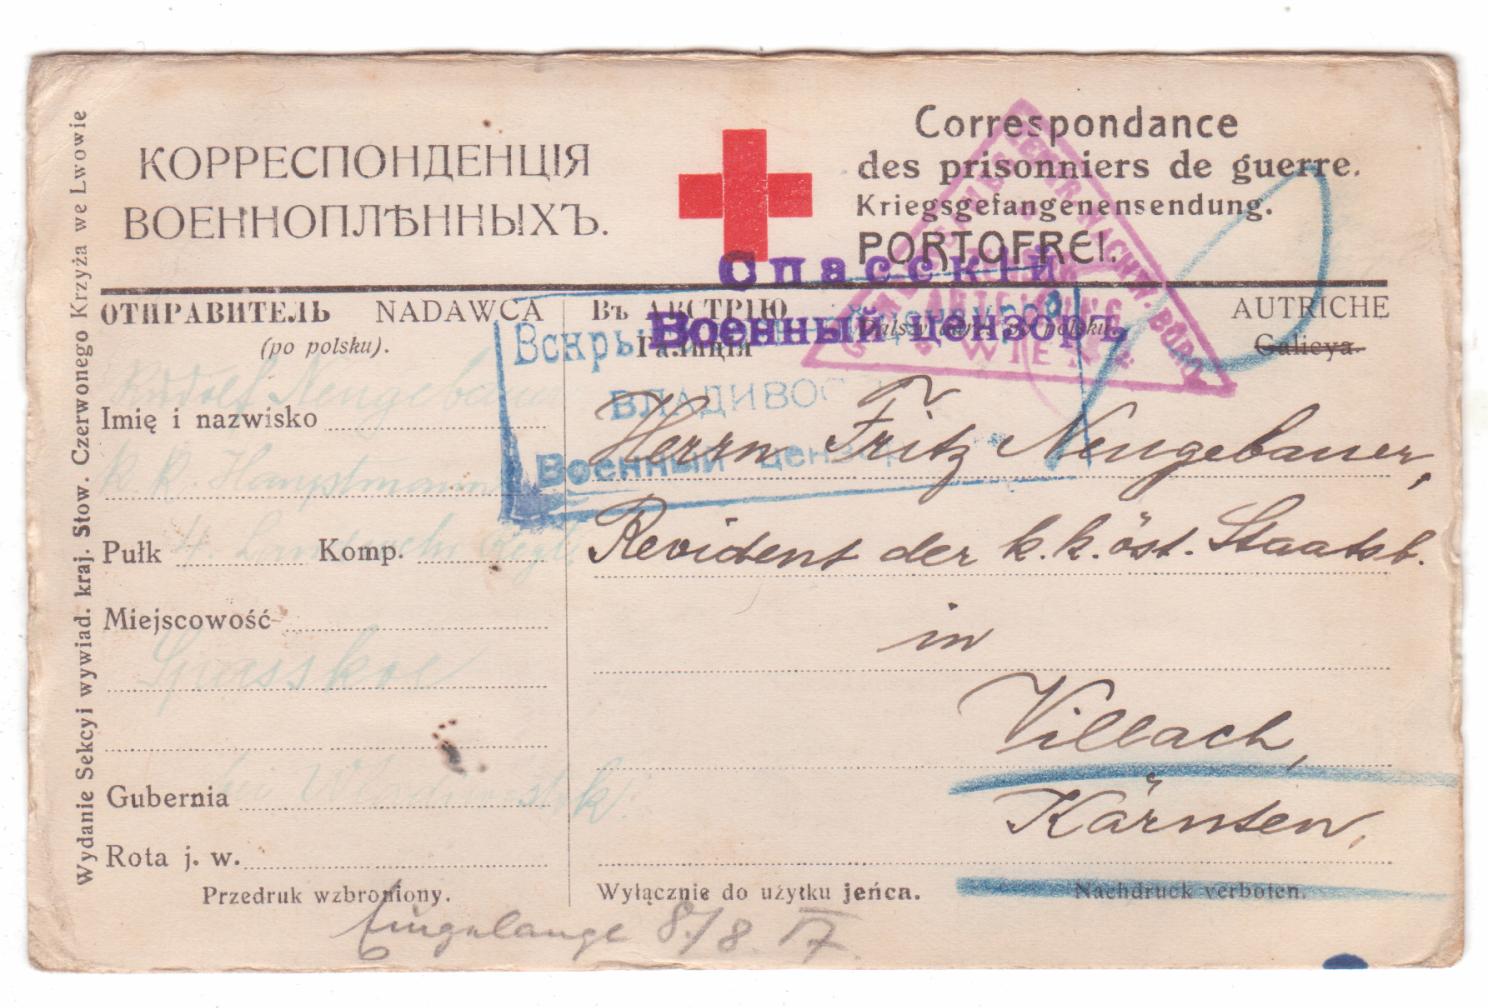 КОРРЕСПОНДЕНЦІЯ
ВОЕННОПЛѢННЫХЪ.
Correspondance
des prisonniers de guerre.
Kriegsgefangenensendung.
PORTOFREI.
Спасскій
Военный цензоръ
ОТПРАВИТЕЛЬ NADAWCA
(po polsku).
Въ АВСТРІЮ
Галиція
AUTRICHE
Galicya.
ВЛАДИВОС
Военный цензор
WIEN
Rudolf Neugebauer
Imię i nazwisko
k. k. Hauptmann
Pułk 4. Landwehr Komp.
Miejscowość
Spasskoe
Gubernia bei
Rota j. w.
Przedruk wzbroniony.
Herrn Fritz Neugebauer,
Revident der k. k. öst. Staatsb.
in
Villach,
Kärnten,
Wyłącznie do użytku jeńca.
Nachdruck verboten.
Eingelangt 8./8. 17.
Wydanie Sekcyi wywiad. kraj. Stow. Czerwonego Krzyża we Lwowie